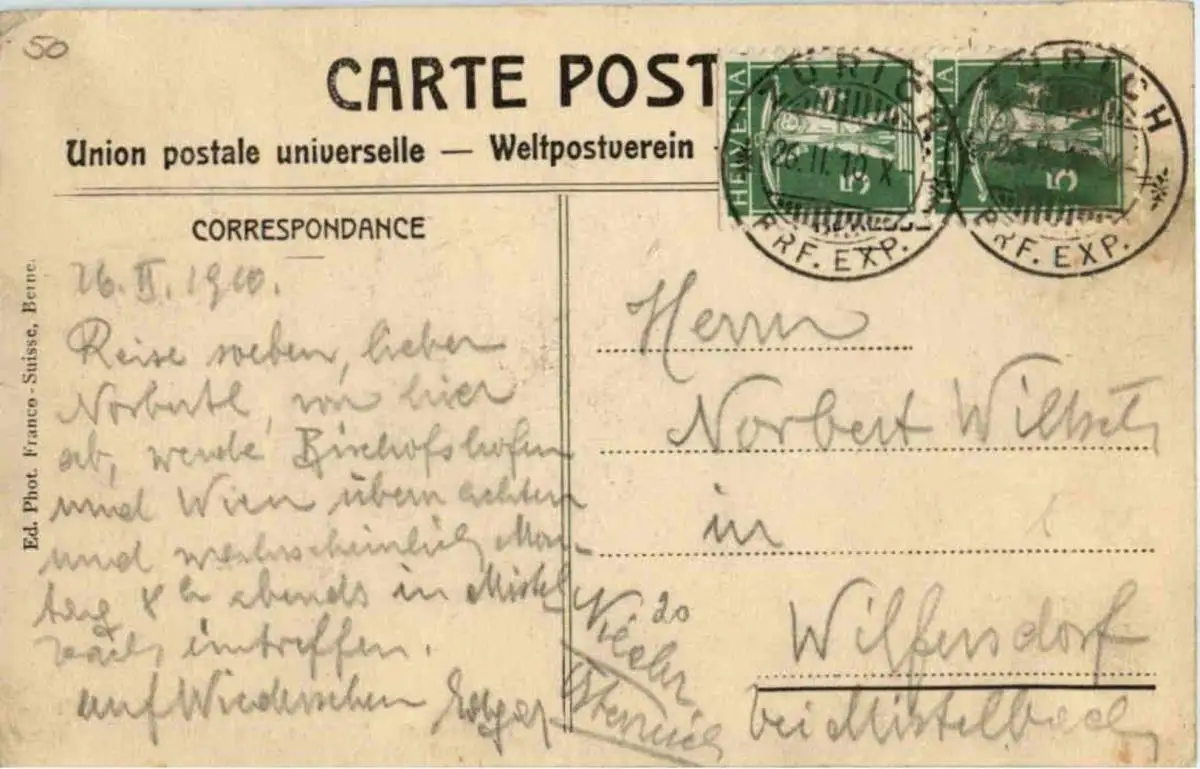 50
CARTE POST
Union postale universelle — Weltpostverein -
HELVETIA
5
HELVETIA
5
ZÜRICH
26.II.10.X-
BRF. EXP.
ZÜRICH
BRF. EXP.
CORRESPONDANCE
26. II. 1910.
Reise soeben, lieber
Norbertl, von hier
ab, werde Bischofshofen
und Wien übernachten
und wahrscheinlich Mon-
tag 8h abends in Mistel
bach eintreffen.
auf Wiedersehen Edgar
Herrn
Norbert
in
Wilfersdorf
bei Mistelbach
Nieder
Österreich
Ed. Phot. Franco-Suisse, Berne.